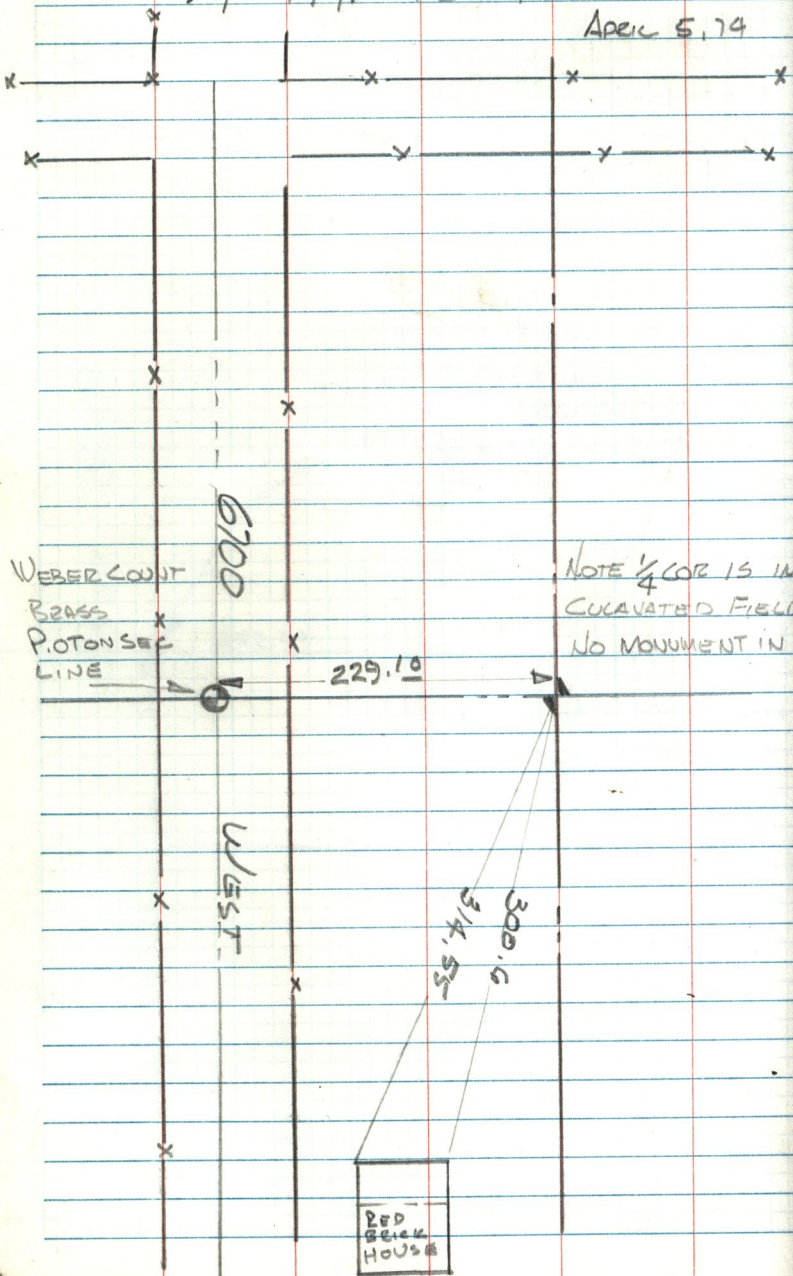 APRIL 5, 74
6700
WEBER COUNT
BRASS
P.OTON SEC
LINE
NOTE 1/4 COR IS IN
CULAVATED FIEL
NO MONUMENT IN
229.10
WEST
300.6
314.55
RED
BRICK
HOUSE